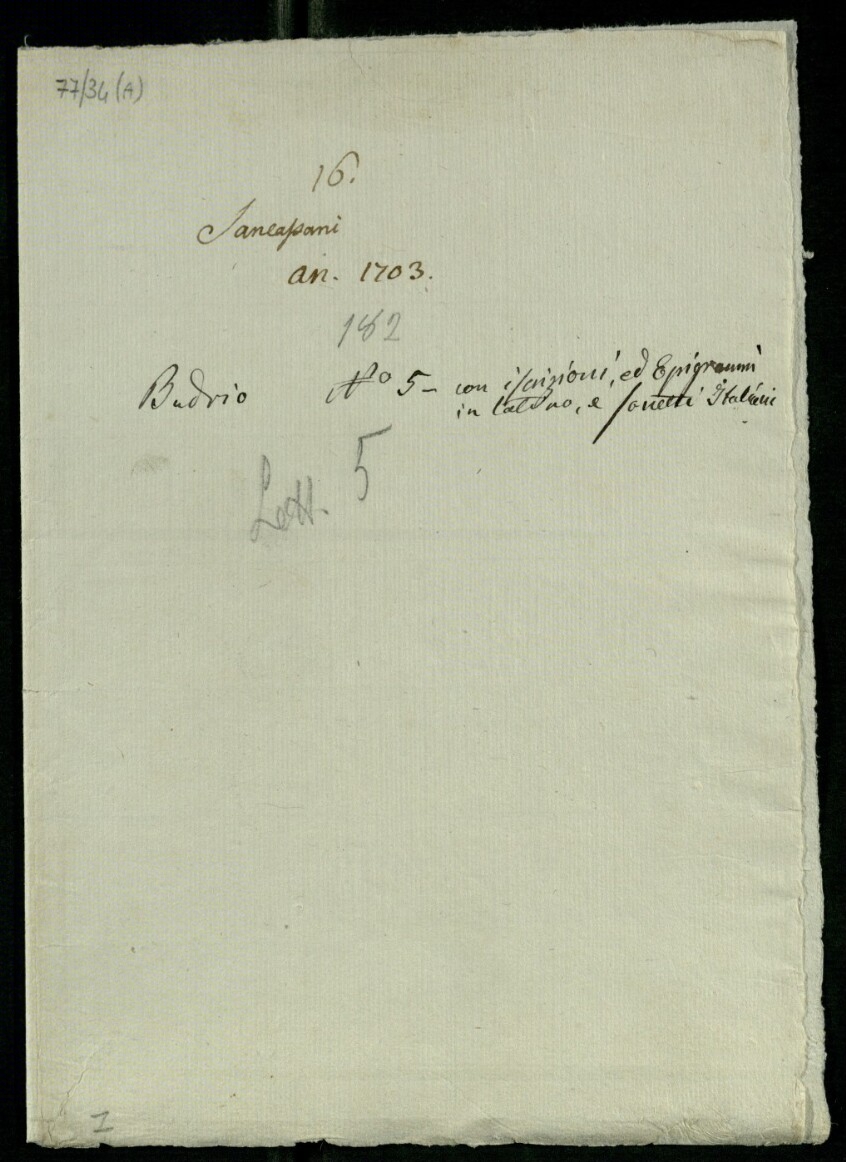 77/34 (A)
16.
Sancassani
an. 1703.
182
Budrio No 5 - con iscrizioni, ed Epigrammi
in latino, e sonetti Italiani
Lett. 5
1